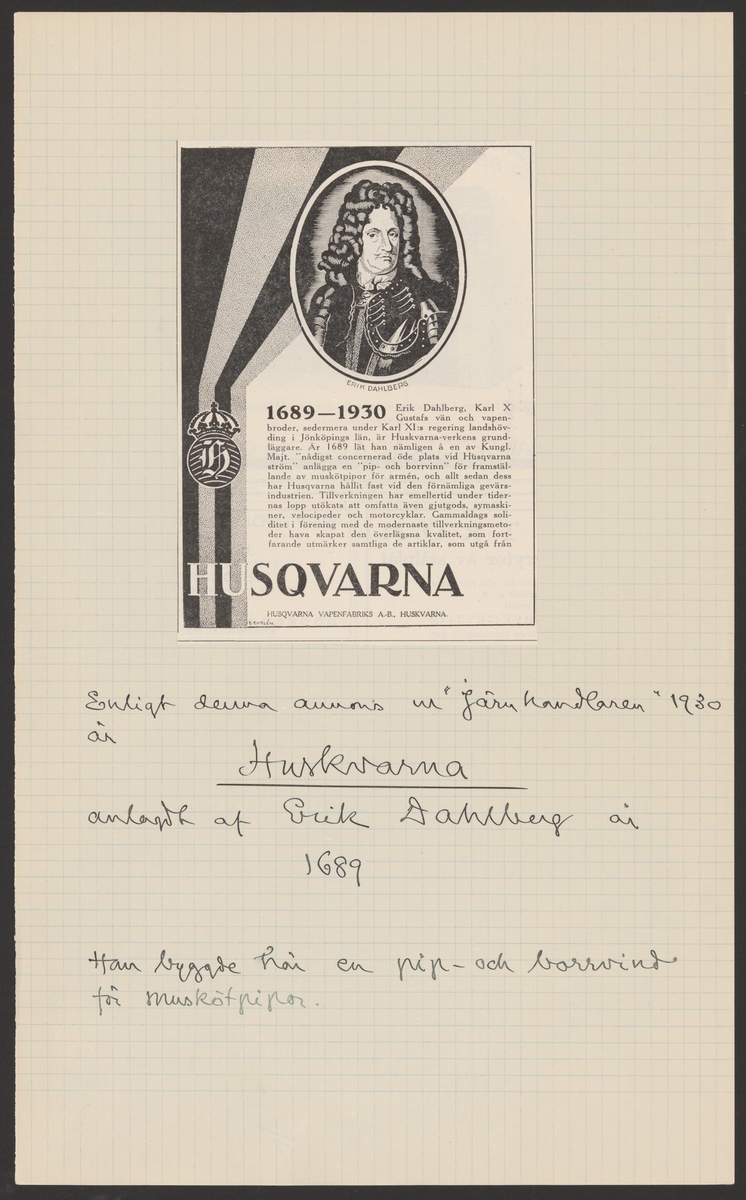 ERIK DAHLBERG
1689—1930 Erik Dahlberg, Karl X
Gustafs vän och vapen-
broder, sedermera under Karl XI:s regering landshöv-
ding i Jönköpings län, är Huskvarna-verkens grund-
läggare. År 1689 lät han nämligen å en av Kungl.
Majt. "nådigst concernerad öde plats vid Husqvarna
ström" anlägga en "pip- och borrvinn" för framstäl-
lande av muskötpipor för armén, och allt sedan dess
har Husqvarna hållit fast vid den förnämliga gevärs-
industrien. Tillverkningen har emellertid under tider-
nas lopp utökats att omfatta även gjutgods, symaski-
ner, velocipeder och motorcyklar. Gammaldags soli-
ditet i förening med de modernaste tillverkningsmeto-
der hava skapat den överlägsna kvalitet, som fort-
farande utmärker samtliga de artiklar, som utgå från
H
HUSQVARNA
HUSQVARNA VAPENFABRIKS A.-B., HUSKVARNA.
Enligt denna annons ur "Järnhandlaren" 1930
är
Huskvarna
anlagdt af Erik Dahlberg år
1689
Han byggde här en pip- och borrvind
för muskötpipor.